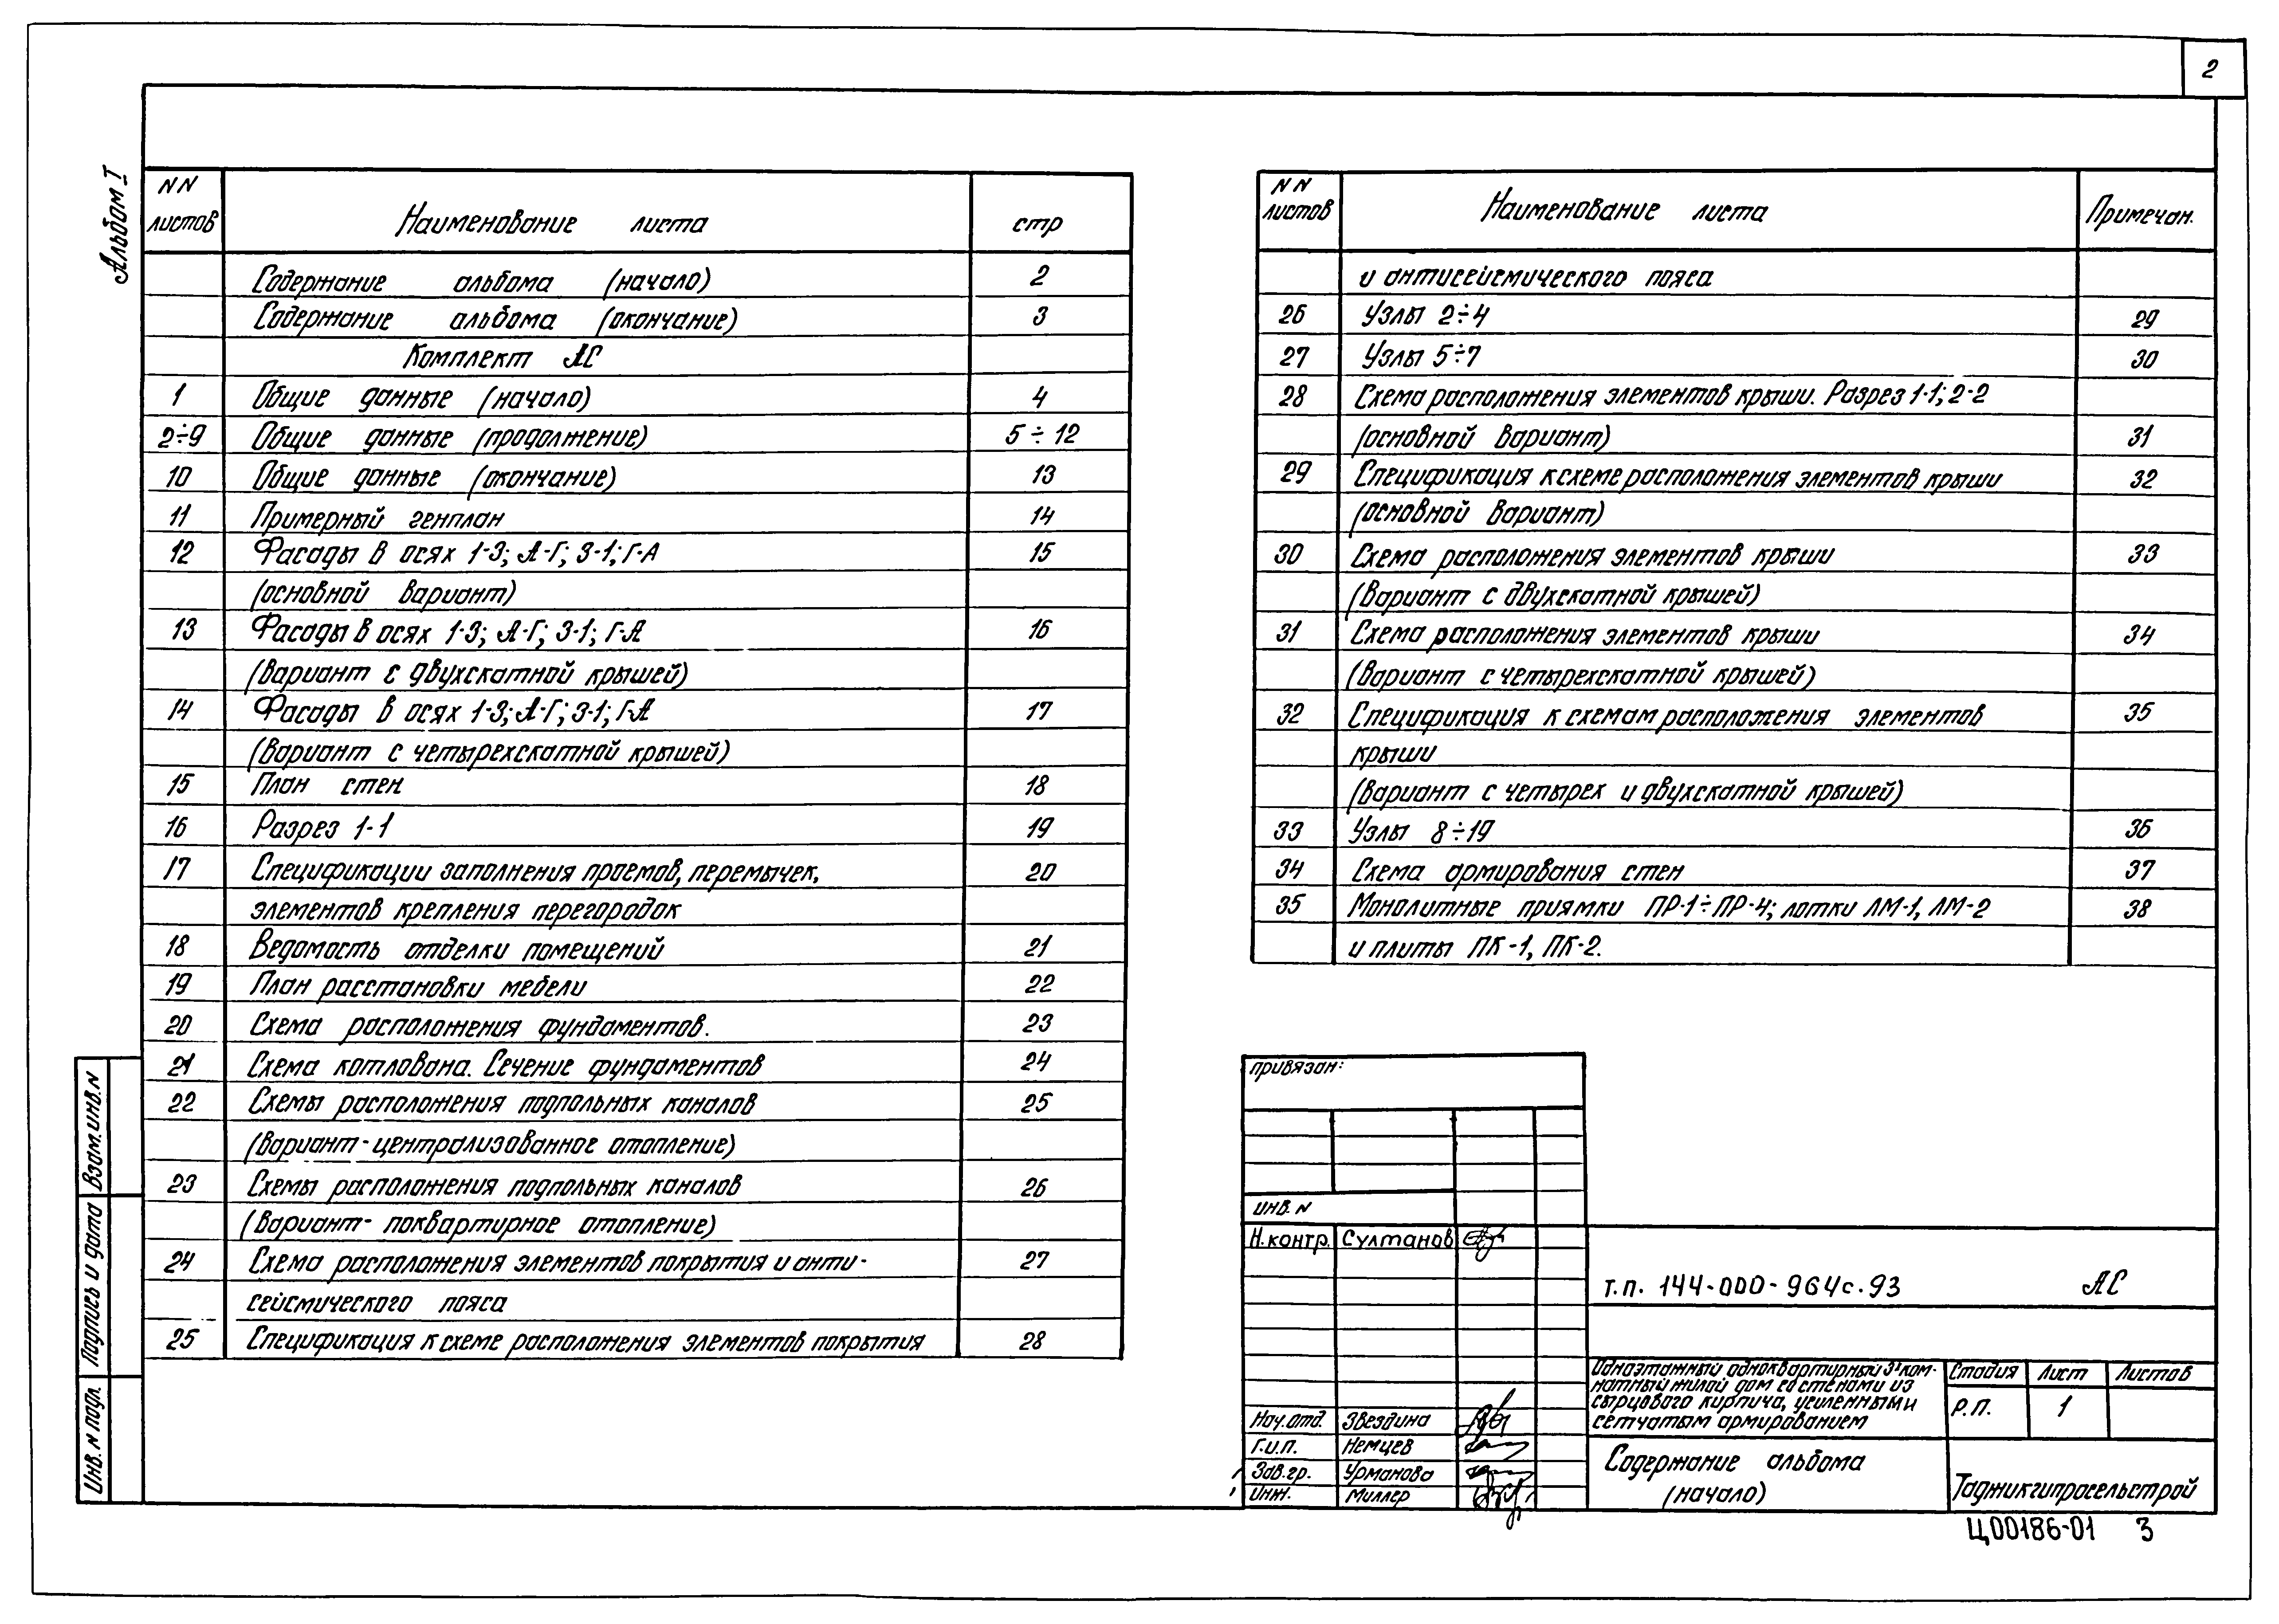 2
Альбом I
NN листов Наименование листа стр
Содержание альбома (начало) 2
Содержание альбома (окончание) 3
Комплект АС
1 Общие данные (начало) 4
2÷9 Общие данные (продолжение) 5÷12
10 Общие данные (окончание) 13
11 Примерный генплан 14
12 Фасады в осях 1-3; А-Г; 3-1; Г-А 15
(основной вариант)
13 Фасады в осях 1-3; А-Г; 3-1; Г-А 16
(вариант с двухскатной крышей)
14 Фасады в осях 1-3; А-Г; 3-1; Г-А 17
(вариант с четырехскатной крышей)
15 План стен 18
16 Разрез 1-1 19
17 Спецификации заполнения проемов, перемычек, 20
элементов крепления перегородок
18 Ведомость отделки помещений 21
19 План расстановки мебели 22
20 Схема расположения фундаментов. 23
21 Схема котлована. Сечение фундаментов 24
22 Схемы расположения подпольных каналов 25
(вариант-централизованное отопление)
23 Схемы расположения подпольных каналов 26
(вариант- поквартирное отопление)
24 Схема расположения элементов покрытия и анти- 27
сейсмического пояса
25 Спецификация к схеме расположения элементов покрытия 28
NN листов Наименование листа Примечан.
и антисейсмического пояса
26 Узлы 2÷4 29
27 Узлы 5÷7 30
28 Схема расположения элементов крыши. Разрез 1-1; 2-2
(основной вариант) 31
29 Спецификация к схеме расположения элементов крыши 32
(основной вариант)
30 Схема расположения элементов крыши 33
(вариант с двухскатной крышей)
31 Схема расположения элементов крыши 34
(вариант с четырехскатной крышей)
32 Спецификация к схемам расположения элементов 35
крыши
(вариант с четырех и двухскатной крышей)
33 Узлы 8÷19 36
34 Схема армирования стен 37
35 Монолитные приямки ПР-1÷ПР-4; лотки ЛМ-1, ЛМ-2 38
и плиты ПК-1, ПК-2.
Взам. инв. N
Подпись и дата
Инв. N подл.
привязан:
инв. N
Н.контр. Султанов
т.п. 144-000-964с.93 АС
Нач.отд. Звездина
Г.и.п. Немцев
Зав.гр. Урманова
Инж. Миллер
Одноэтажный одноквартирный 3х ком-
натный жилой дом со стенами из
сырцового кирпича, усиленными
сетчатым армированием
Стадия Лист Листов
Р.П. 1
Содержание альбома
(начало)
Таджикгипросельстрой
Ц00186-01 3